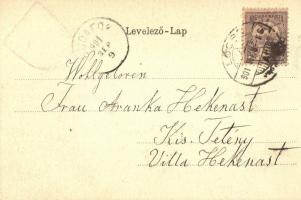 Levelező-Lap
Wohlgeboren
Frau Aranka Hekenast
Kis. Tétény
Villa Hekenast